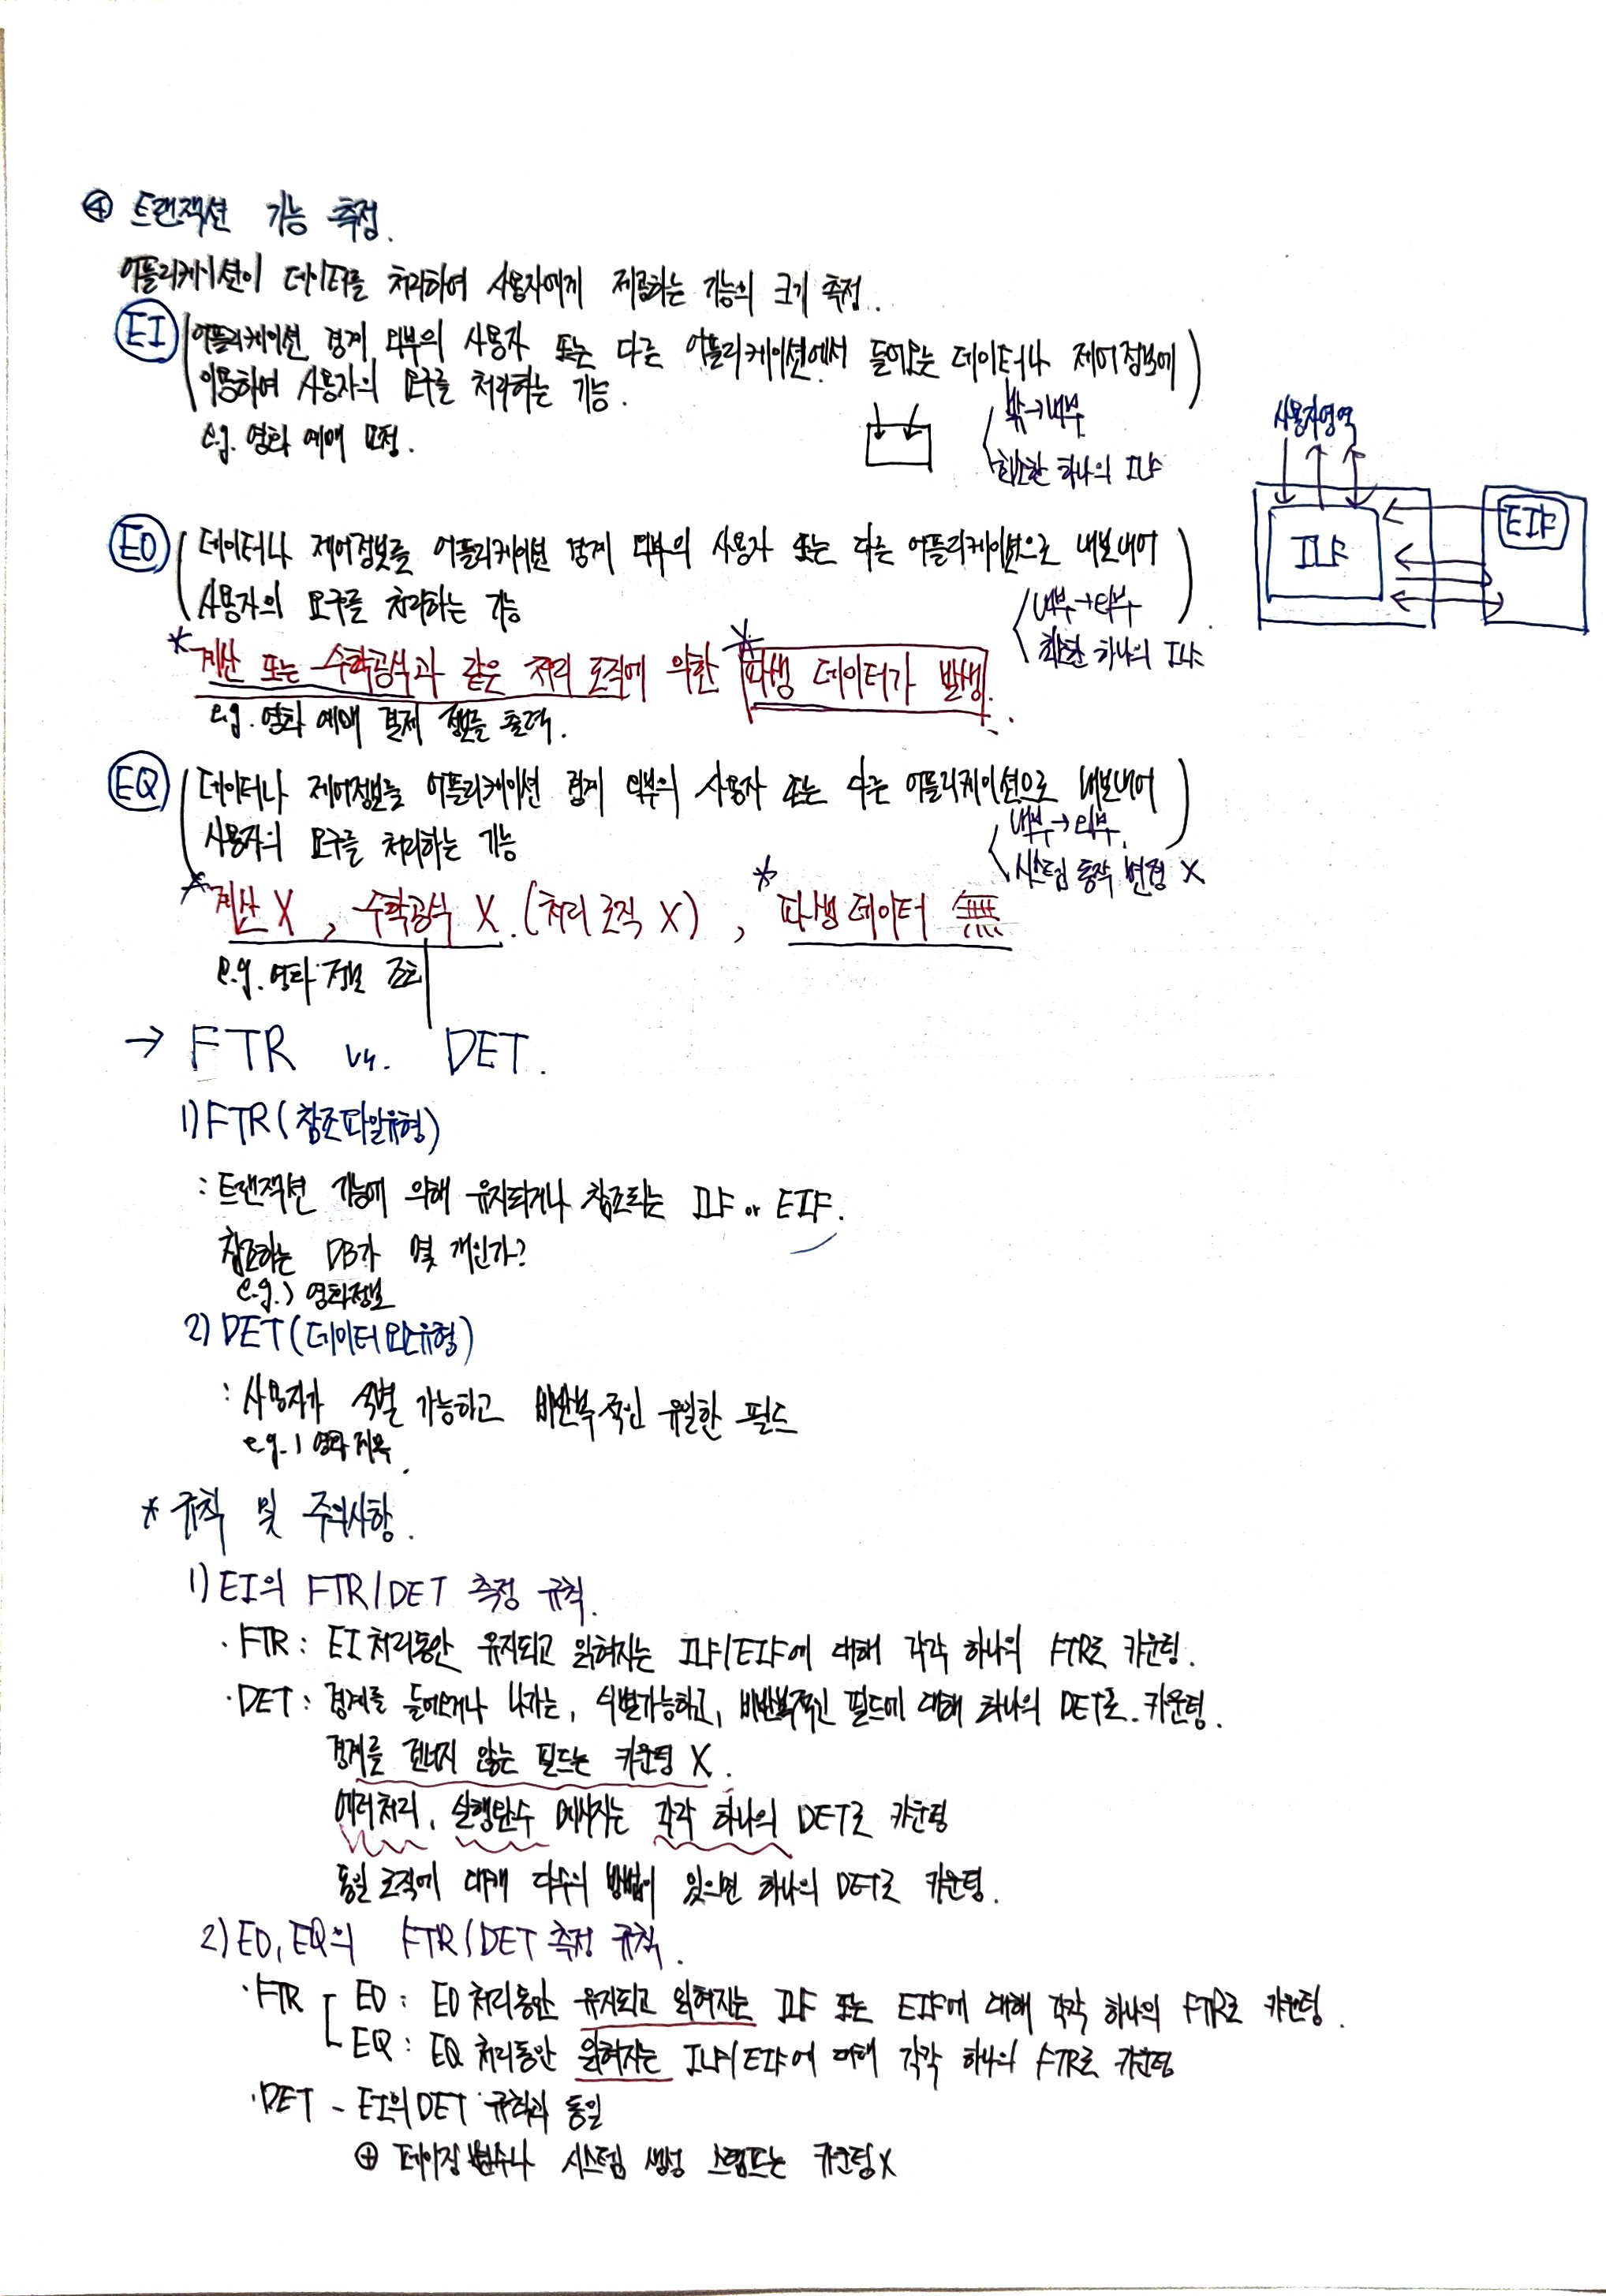 ④ 트랜잭션 기능 측정.
어플리케이션이 데이터를 처리하여 사용자에게 제공하는 기능의 크기 측정.
EI 어플리케이션 경계 외부의 사용자 또는 다른 어플리케이션에서 들어오는 데이터나 제어정보에
이용하여 사용자의 요구를 처리하는 기능.
e.g. 영화 예매 요청.
밖→내부
최소한 하나의 ILF
사용자영역
ILF
EIF
EO 데이터나 제어정보를 어플리케이션 경계 외부의 사용자 또는 다른 어플리케이션으로 내보내어
사용자의 요구를 처리하는 기능
내부→외부
최소한 하나의 ILF
* 계산 또는 수학공식과 같은 처리 로직에 의한 * 파생 데이터가 발생.
e.g. 영화 예매 결제 정보를 출력.
EQ 데이터나 제어정보를 어플리케이션 경계 외부의 사용자 또는 다른 어플리케이션으로 내보내어
사용자의 요구를 처리하는 기능
내부→외부.
시스템 동작 변경 X
* 계산 X, 수학공식 X. (처리 로직 X), * 파생 데이터 無
e.g. 영화 정보 조회
→ FTR vs. DET.
1) FTR (참조파일유형)
: 트랜잭션 기능에 의해 유지되거나 참조되는 ILF or EIF.
참조하는 DB가 몇 개인가?
e.g.) 영화정보
2) DET (데이터요소유형)
: 사용자가 식별 가능하고 비반복적인 유일한 필드
e.g.) 영화제목.
* 규칙 및 주의사항.
1) EI의 FTR/DET 측정 규칙.
· FTR : EI 처리동안 유지되고 읽혀지는 ILF/EIF에 대해 각각 하나의 FTR로 카운팅.
· DET : 경계를 들어오거나 나가는, 식별가능하고, 비반복적인 필드에 대해 하나의 DET로 카운팅.
경계를 건너지 않는 필드는 카운팅 X.
에러처리, 실행완수 메시지는 각각 하나의 DET로 카운팅
동일 로직에 대해 다수의 방법이 있으면 하나의 DET로 카운팅.
2) EO, EQ의 FTR/DET 측정 규칙.
· FTR EO : EO 처리동안 유지되고 읽혀지는 ILF 또는 EIF에 대해 각각 하나의 FTR로 카운팅.
EQ : EQ 처리동안 읽혀지는 ILF/EIF에 대해 각각 하나의 FTR로 카운팅
· DET - EI의 DET 규칙과 동일
⊕ 페이징 변수나 시스템 생성 스탬프는 카운팅 X